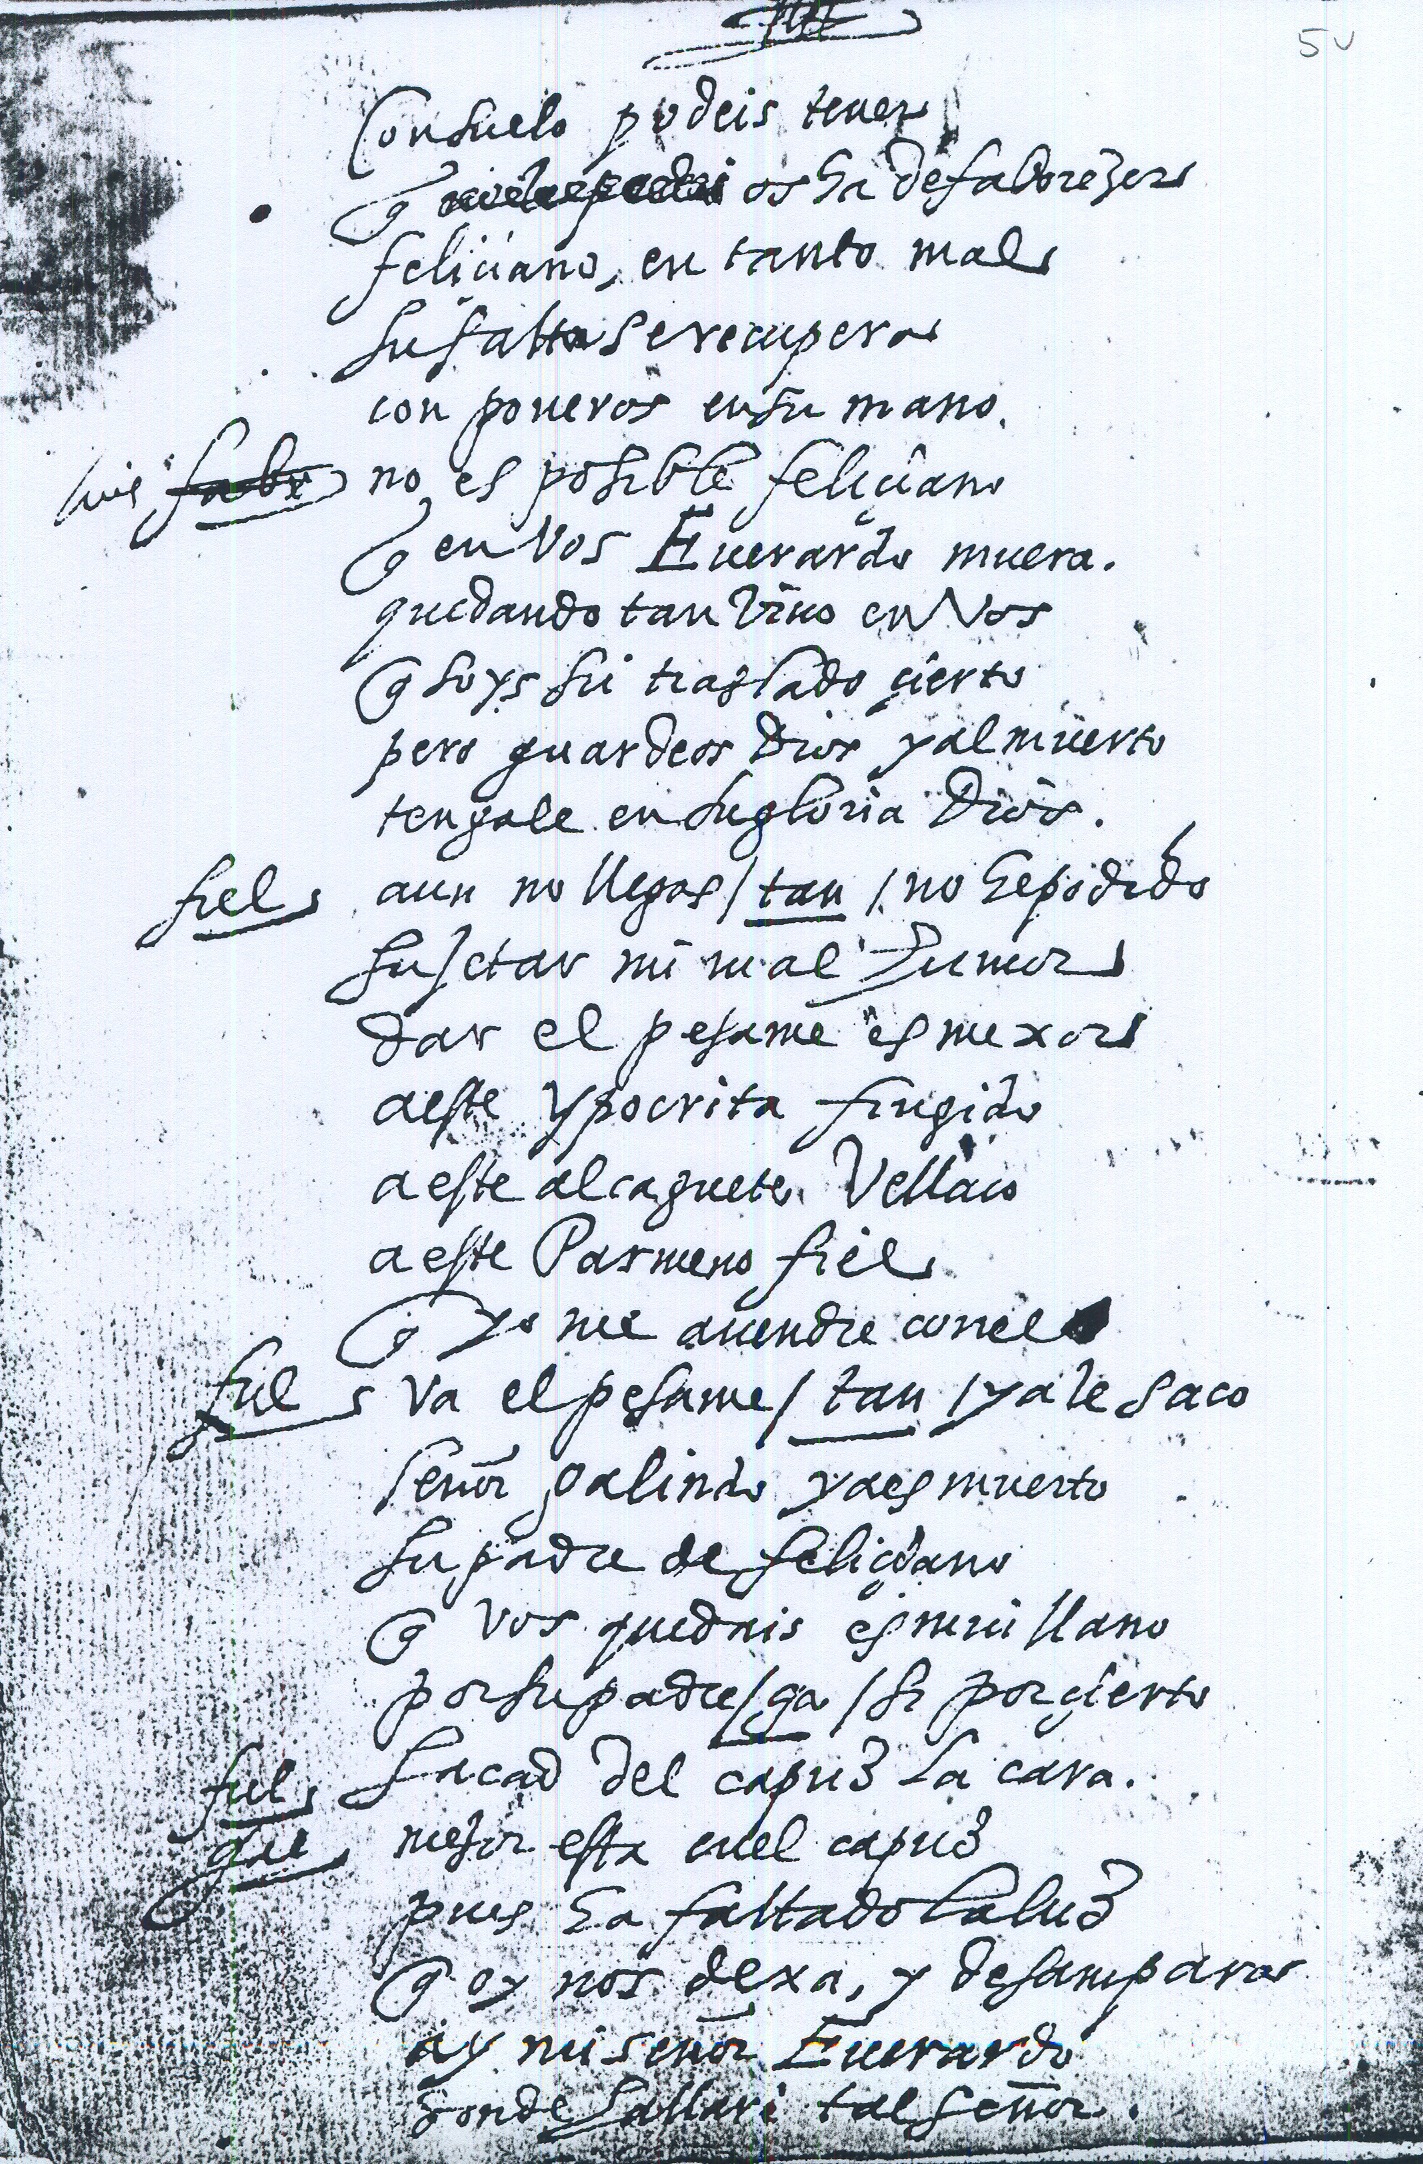 5v
Consuelo podeis tener
q os ha defaborezer
feliciano, en tanto mal
su falta se recupera
con poneros en su mano.
luis fabr no es posible feliçiano
q en vos Euerardo muera.
quedando tan viuo en vos
q soys su traslado çierto
pero guardeos Dios y al muerto
tengale en su gloria Dios.
fiel aun no llegas / tan / no he podido
sujetar mi mal humor
dar el pesame es mexor
a este ypocrita fingido
a este alcaguete vellaco
a este Parmeno fiel
q yo me auendre con el
fiel va el pesame / tan / ya le saco
señor galindo ya es muerto
su padre de feliçiano
q vos quedais es mui llano
por su padre / ga / si por çierto
fiel sacad del capuz la cara.
gal mejor esta en el capuz
pues ha faltado la luz
q oy nos dexa, y desampara
ay mi señor Euerardo
donde hallare tal señor.